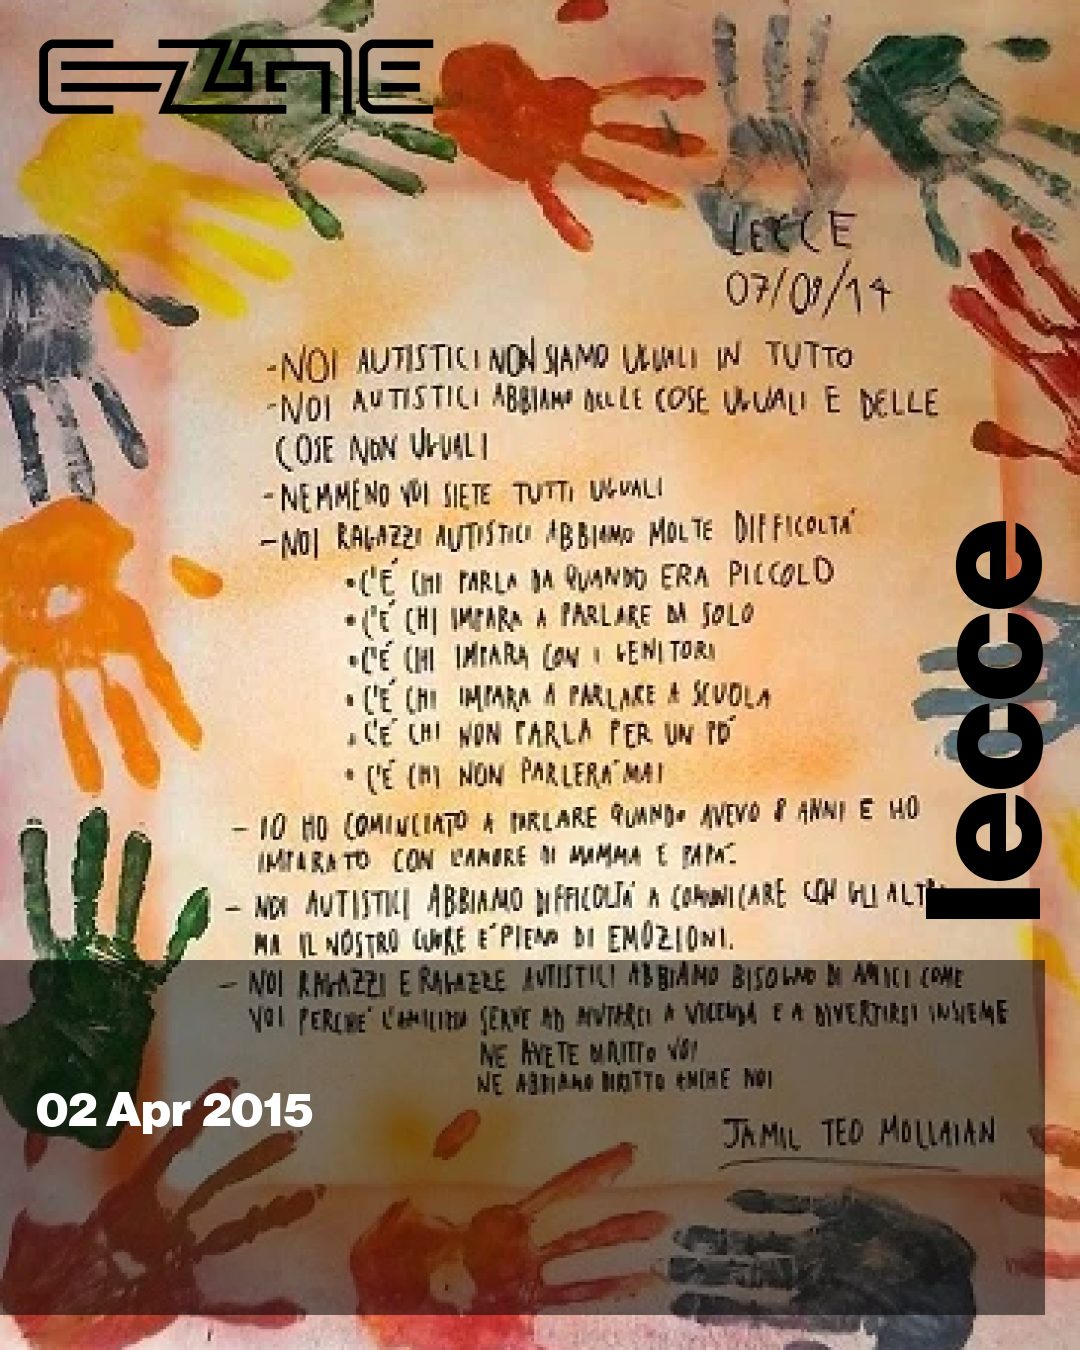 E-ZINE
LECCE
07/09/14
-NOI AUTISTICI NON SIAMO UGUALI IN TUTTO
-NOI AUTISTICI ABBIAMO DELLE COSE UGUALI E DELLE
COSE NON UGUALI
-NEMMENO VOI SIETE TUTTI UGUALI
-NOI RAGAZZI AUTISTICI ABBIAMO MOLTE DIFFICOLTA'
• C'É CHI PARLA DA QUANDO ERA PICCOLO
• C'É CHI IMPARA A PARLARE DA SOLO
• C'É CHI IMPARA CON I GENITORI
• C'É CHI IMPARA A PARLARE A SCUOLA
• C'É CHI NON PARLA PER UN PO'
• C'É CHI NON PARLERA' MAI
- IO HO COMINCIATO A PARLARE QUANDO AVEVO 8 ANNI E HO
IMPARATO CON L'AMORE DI MAMMA E PAPA'.
- NOI AUTISTICI ABBIAMO DIFFICOLTA' A COMUNICARE CON GLI ALTRI
MA IL NOSTRO CUORE E' PIENO DI EMOZIONI.
- NOI RAGAZZI E RAGAZZE AUTISTICI ABBIAMO BISOGNO DI AMICI COME
VOI PERCHE' L'AMICIZIA SERVE AD AIUTARCI A VICENDA E A DIVERTIRSI INSIEME
NE AVETE DIRITTO VOI
NE ABBIAMO DIRITTO ANCHE NOI
JAMIL TEO MOLLAIAN
lecce
02 Apr 2015